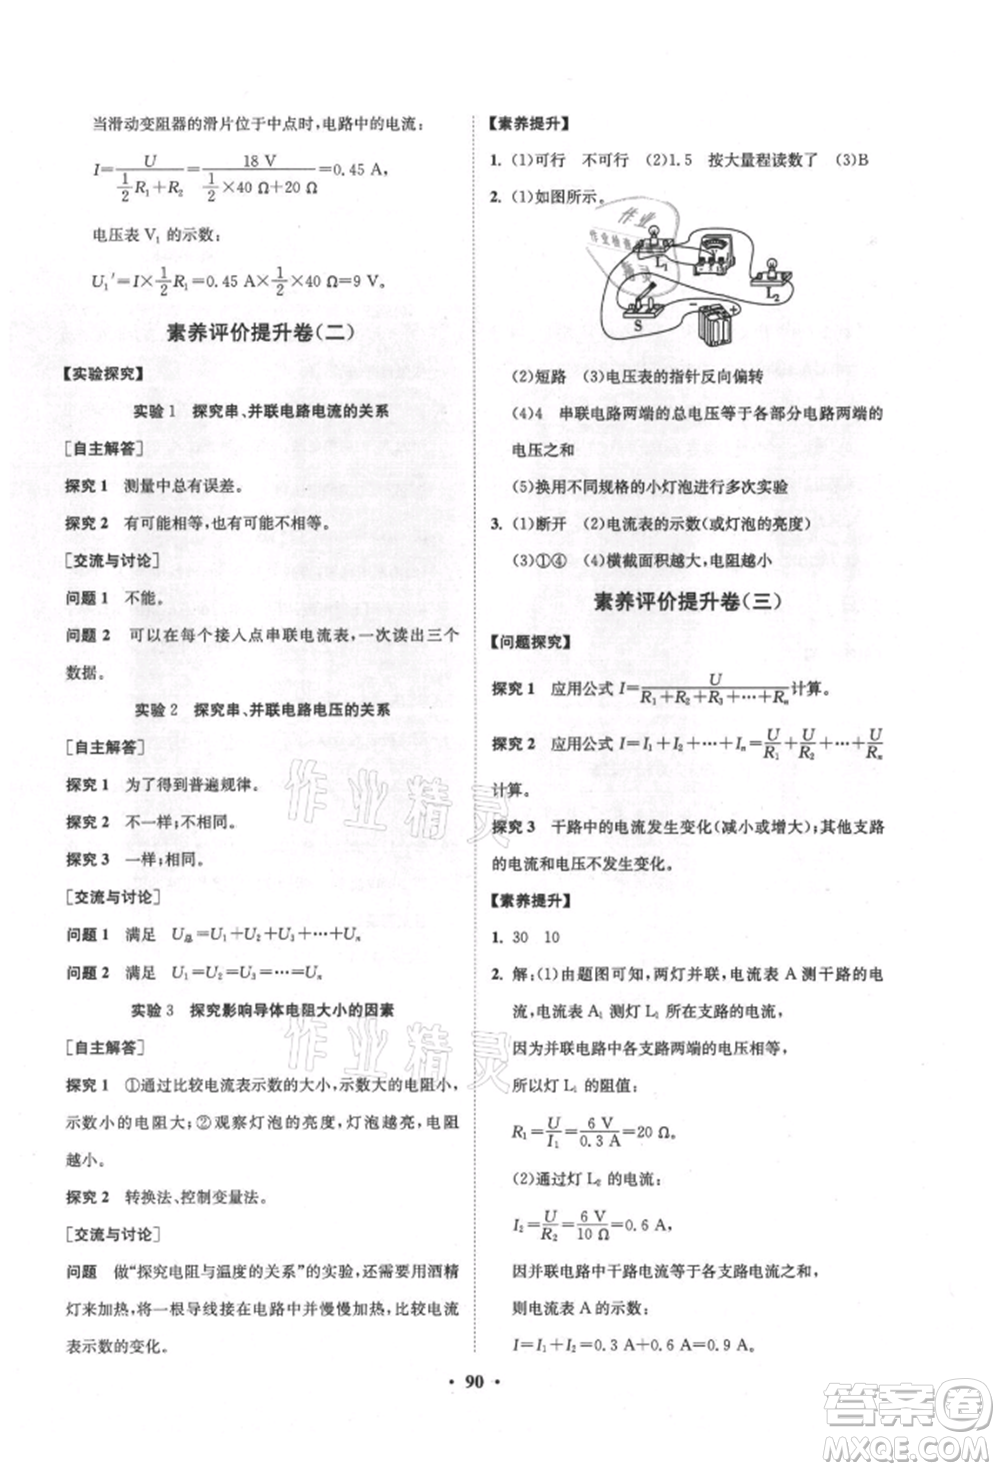 当滑动变阻器的滑片位于中点时,电路中的电流:
I=U/(1/2 R₁+R₂)=18 V/(1/2×40 Ω+20 Ω)=0.45 A
电压表 V₁ 的示数:
U₁′=I×1/2 R₁=0.45 A×1/2×40 Ω=9 V。
素养评价提升卷(二)
【实验探究】
实验 1 探究串、并联电路电流的关系
[自主解答]
探究 1 测量中总有误差。
探究 2 有可能相等,也有可能不相等。
[交流与讨论]
问题 1 不能。
问题 2 可以在每个接入点串联电流表,一次读出三个
数据。
实验 2 探究串、并联电路电压的关系
[自主解答]
探究 1 为了得到普遍规律。
探究 2 不一样;不相同。
探究 3 一样;相同。
[交流与讨论]
问题 1 满足 U总=U₁+U₂+…+Uₙ
问题 2 满足 U₁=U₂=…=Uₙ
实验 3 探究影响导体电阻大小的因素
[自主解答]
探究 1 ①通过比较电流表示数的大小,示数大的电阻小,
示数小的电阻大;②观察灯泡的亮度,灯泡越亮,电阻
越小。
探究 2 转换法、控制变量法。
[交流与讨论]
问题 做“探究电阻与温度的关系”的实验,还可以用酒精
灯来加热,将一根导线接在电路中并慢慢加热,比较电流
表示数的变化。
【素养提升】
1. (1)可行 不可行 (2)1.5 按大量程读数了 (3)B
2. (1)如图所示。
L₁
V
L₂
S
− +
(2)短路 (3)电压表的指针反向偏转
(4)4 串联电路两端的总电压等于各部分电路两端的
电压之和
(5)换用不同规格的小灯泡进行多次实验
3. (1)断开 (2)电流表的示数(或灯泡的亮度)
(3)①④ (4)横截面积越大,电阻越小
素养评价提升卷(三)
【问题探究】
探究 1 应用公式 I=U/(R₁+R₂+R₃+…+Rₙ)计算。
探究 2 应用公式 I=I₁+I₂+…+Iₙ=U/R₁+U/R₂+…+U/Rₙ
计算。
探究 3 干路中的电流发生变化(减小或增大);其他支路
的电流和电压不发生变化。
【素养提升】
1. 30 10
2. 解:(1)由题图可知,两灯并联,电流表 A 测干路的电
流,电流表 A₁ 测灯 L₁ 的支路电流,
因为并联电路中各支路两端的电压相等,
所以灯 L₁ 的阻值:
R₁=U/I₁=6 V/0.3 A=20 Ω。
(2)通过灯 L₂ 的电流:
I₂=U/R₂=6 V/10 Ω=0.6 A,
因并联电路中干路电流等于各支路电流之和,
则电流表 A 的示数:
I=I₁+I₂=0.3 A+0.6 A=0.9 A。
• 90 •
作业精灵
作业精灵
作业
作业检查
精灵
答案卷
MXQE.COM